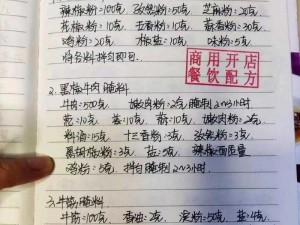 辣椒粉=100克, 孜然粉=50克, 芝麻=20克
花椒粉=10克, 五香粉=10克, 茴香粉=30克
鸡粉=20克, 椒盐=10克, 味粉=5克
将各料拌匀即可.
商用开店
餐饮配方
2.黑椒牛肉腌料
牛肉=500克, 嫩肉粉=2克 腌制2~3小时
葱=10克, 姜=10克, 蒜=10克, 嫩肉粉=2克
料酒=15克, 十三香=3克, 孜然粉=3克
黑胡椒粉=3克, 盐=5克, 辣椒面适量
鸡粉=5克, 拌匀腌制2~3小时.
3.牛筋腌料
牛筋=100克, 香油=2克, 淀粉=50克, 盐=4克